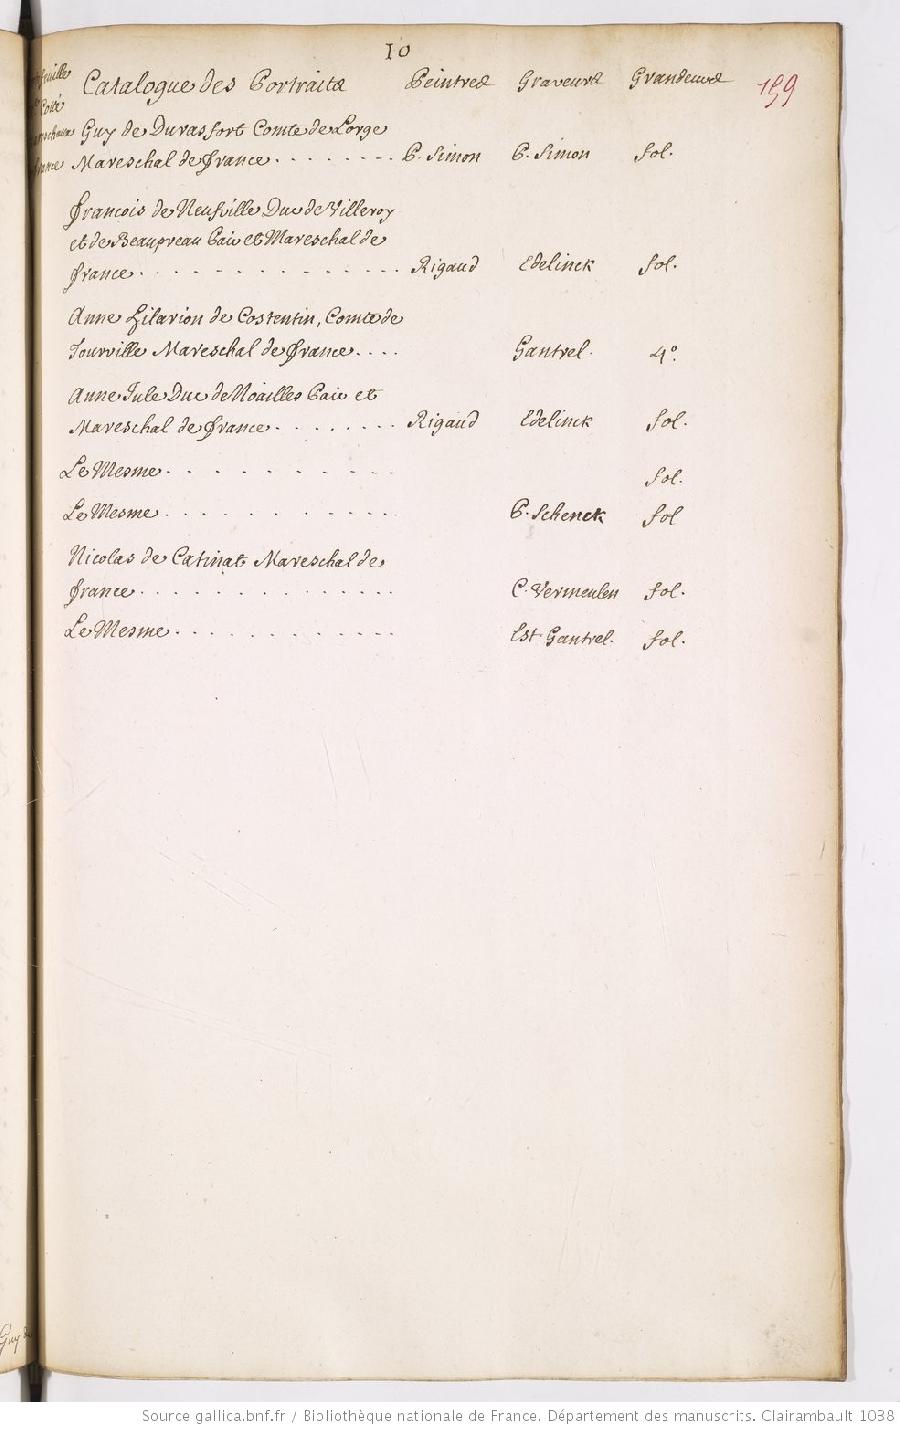 10
Catalogue des Portraits Peintres Graveurs Grandeurs 159
Guy de Durasfort Comte de Lorge
Mareschal de france . . . . . . . . P. Simon P. Simon fol.
françois de Neufville Duc de Villeroy
et de Beaupreau Pair et Mareschal de
france . . . . . . . . . . . . . . Rigaud Edelinck fol.
Anne Hilarion de Costentin, Comte de
Tourville Mareschal de france . . . . Gantrel. 4º.
Anne Jule Duc de Noailles Pair et
Mareschal de france . . . . . . . . Rigaud Edelinck fol.
Le Mesme . . . . . . . . . . fol.
Le Mesme . . . . . . . . . . P. Schenck fol
Nicolas de Catinat Mareschal de
france . . . . . . . . . . . C. Vermeulen fol.
Le Mesme . . . . . . . . . . Est Gantrel. fol.
Guy
Source gallica.bnf.fr / Bibliothèque nationale de France. Département des manuscrits. Clairambault 1038